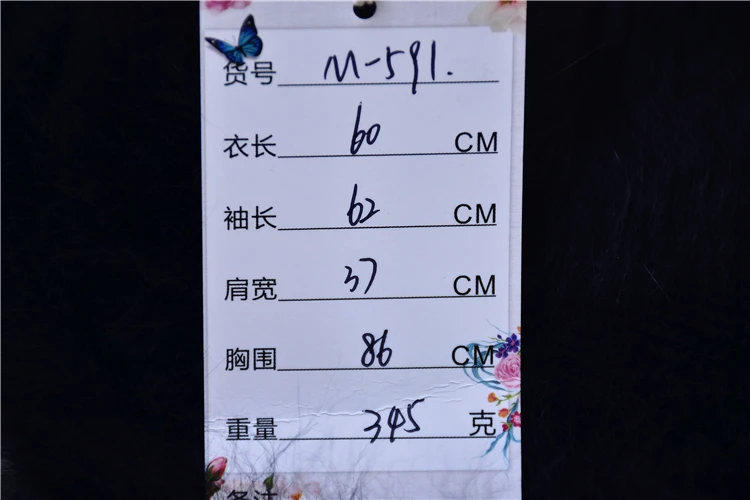 货号 M-591.
衣长 60 CM
袖长 62 CM
肩宽 37 CM
胸围 86 CM
重量 345 克
备注